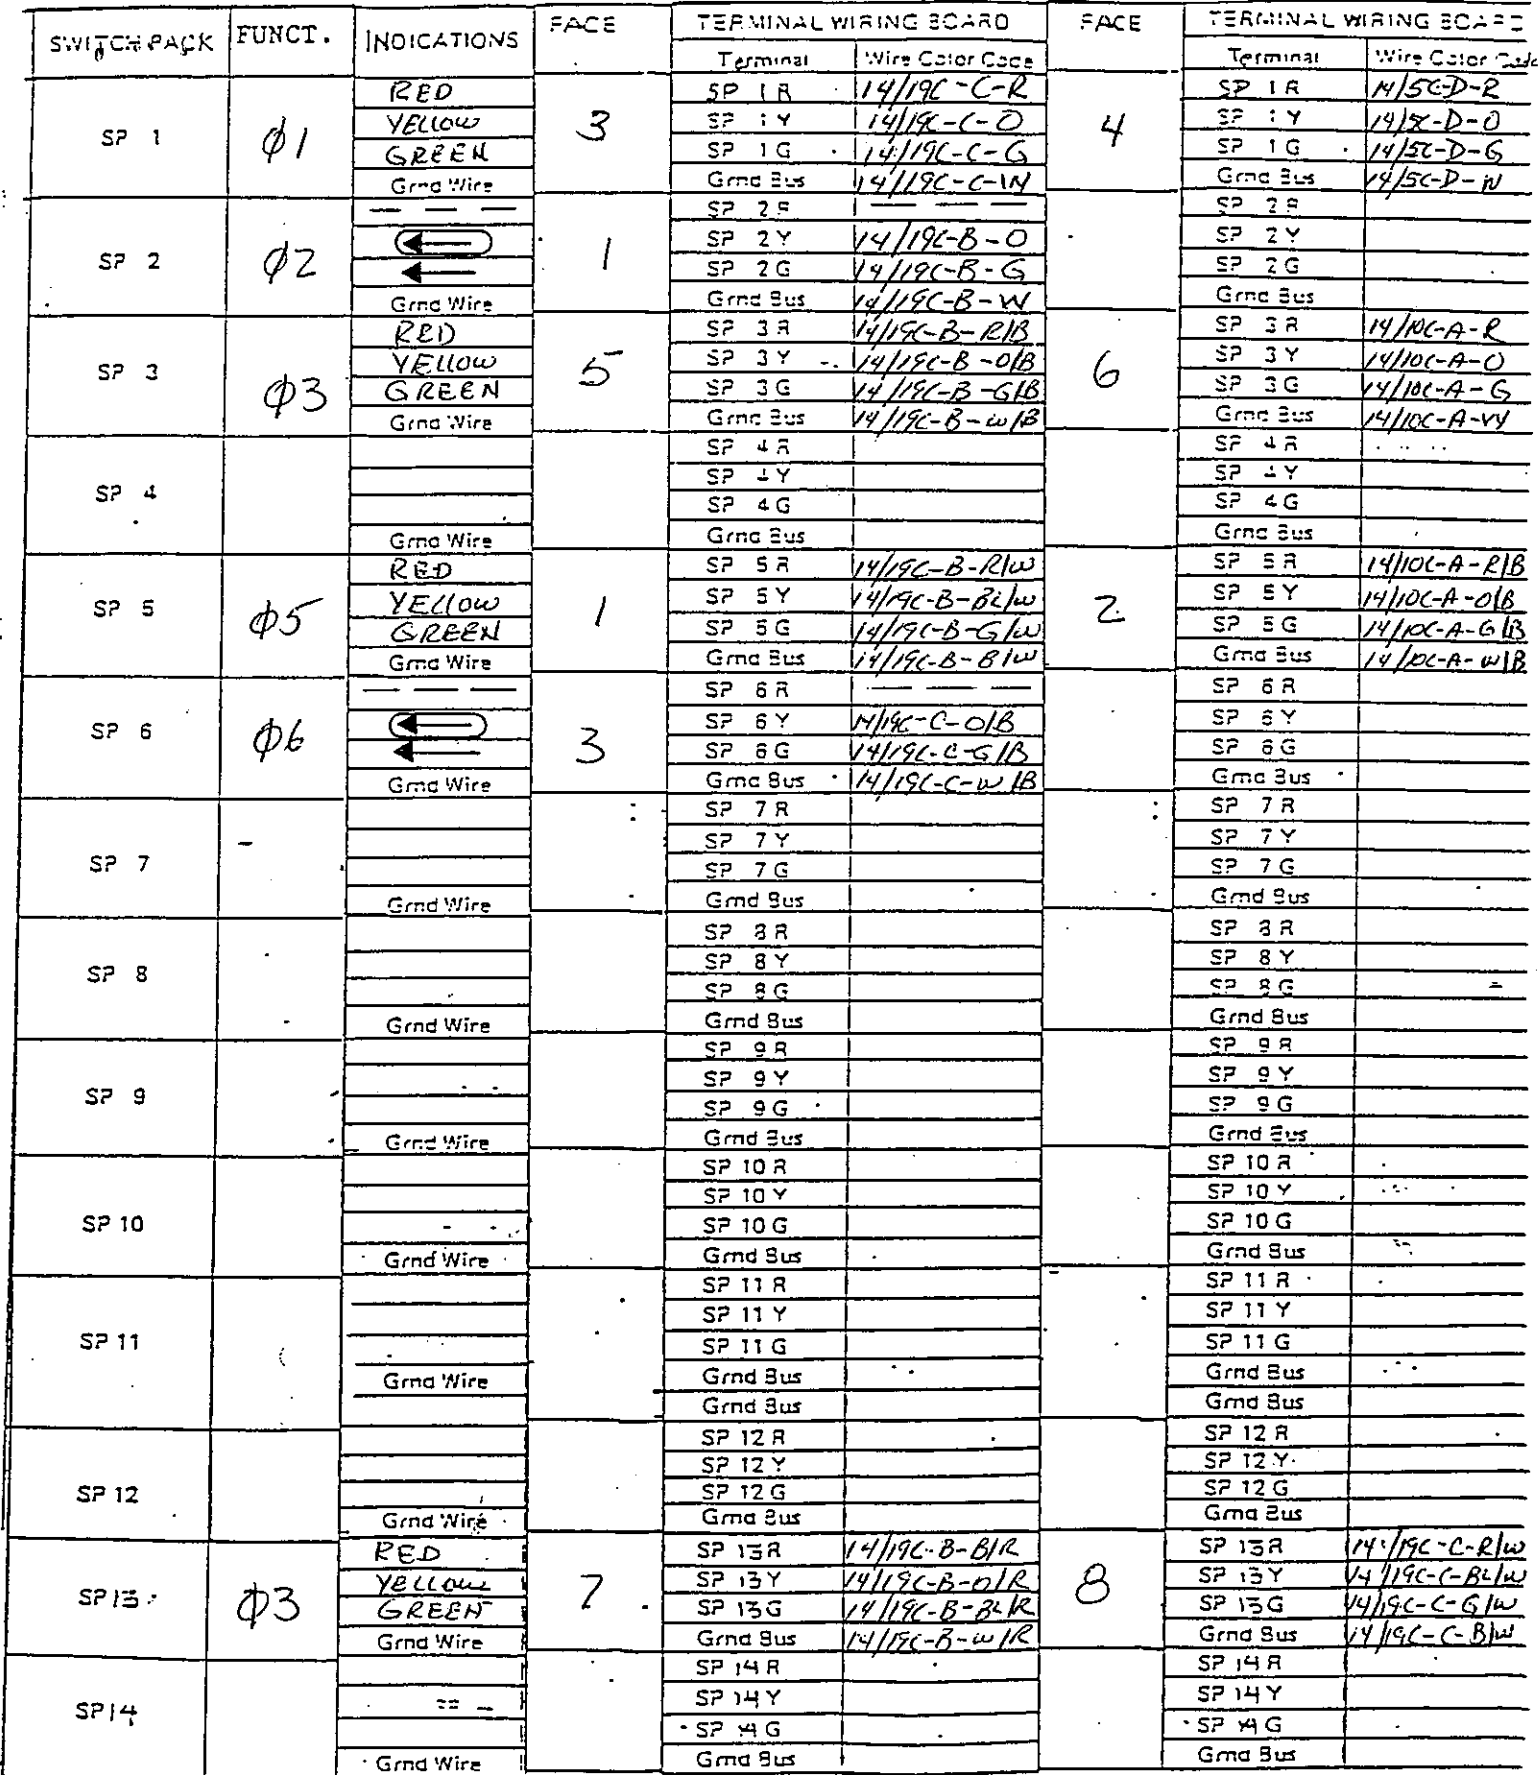 SWITCH PACK FUNCT. INDICATIONS FACE TERMINAL WIRING BOARD FACE TERMINAL WIRING BOARD
Terminal Wire Color Code Terminal Wire Color Code
SP 1 φ1 3 4
RED SP 1 R 14/19C-C-R SP 1 R 14/5C-D-R
YELLOW SP 1 Y 14/19C-C-O SP 1 Y 14/5C-D-O
GREEN SP 1 G 14/19C-C-G SP 1 G 14/5C-D-G
Grnd Wire Grnd Bus 14/19C-C-W Grnd Bus 14/5C-D-W
SP 2 φ2 1
— — — SP 2 R — — — SP 2 R
← SP 2 Y 14/19C-B-O SP 2 Y
← SP 2 G 14/19C-B-G SP 2 G
Grnd Wire Grnd Bus 14/19C-B-W Grnd Bus
SP 3 φ3 5 6
RED SP 3 R 14/19C-B-R/B SP 3 R 14/10C-A-R
YELLOW SP 3 Y 14/19C-B-O/B SP 3 Y 14/10C-A-O
GREEN SP 3 G 14/19C-B-G/B SP 3 G 14/10C-A-G
Grnd Wire Grnd Bus 14/19C-B-W/B Grnd Bus 14/10C-A-W
SP 4
SP 4 R SP 4 R
SP 4 Y SP 4 Y
SP 4 G SP 4 G
Grnd Wire Grnd Bus Grnd Bus
SP 5 φ5 1 2
RED SP 5 R 14/19C-B-R/W SP 5 R 14/10C-A-R/B
YELLOW SP 5 Y 14/19C-B-BL/W SP 5 Y 14/10C-A-O/B
GREEN SP 5 G 14/19C-B-G/W SP 5 G 14/10C-A-G/B
Grnd Wire Grnd Bus 14/19C-B-B/W Grnd Bus 14/10C-A-W/B
SP 6 φ6 3
— — — SP 6 R — — — SP 6 R
← SP 6 Y 14/19C-C-O/B SP 6 Y
← SP 6 G 14/19C-C-G/B SP 6 G
Grnd Wire Grnd Bus 14/19C-C-W/B Grnd Bus
SP 7
SP 7 R SP 7 R
SP 7 Y SP 7 Y
SP 7 G SP 7 G
Grnd Wire Grnd Bus Grnd Bus
SP 8
SP 8 R SP 8 R
SP 8 Y SP 8 Y
SP 8 G SP 8 G
Grnd Wire Grnd Bus Grnd Bus
SP 9
SP 9 R SP 9 R
SP 9 Y SP 9 Y
SP 9 G SP 9 G
Grnd Wire Grnd Bus Grnd Bus
SP 10
SP 10 R SP 10 R
SP 10 Y SP 10 Y
SP 10 G SP 10 G
Grnd Wire Grnd Bus Grnd Bus
SP 11
SP 11 R SP 11 R
SP 11 Y SP 11 Y
SP 11 G SP 11 G
Grnd Wire Grnd Bus Grnd Bus
Grnd Bus Grnd Bus
SP 12
SP 12 R SP 12 R
SP 12 Y SP 12 Y
SP 12 G SP 12 G
Grnd Wire Grnd Bus Grnd Bus
SP 13 φ3 7 8
RED SP 13 R 14/19C-B-B/R SP 13 R 14/19C-C-R/W
YELLOW SP 13 Y 14/19C-B-O/R SP 13 Y 14/19C-C-BL/W
GREEN SP 13 G 14/19C-B-BL/R SP 13 G 14/19C-C-G/W
Grnd Wire Grnd Bus 14/19C-B-W/R Grnd Bus 14/19C-C-B/W
SP 14
SP 14 R SP 14 R
SP 14 Y SP 14 Y
SP 14 G SP 14 G
Grnd Wire Grnd Bus Grnd Bus